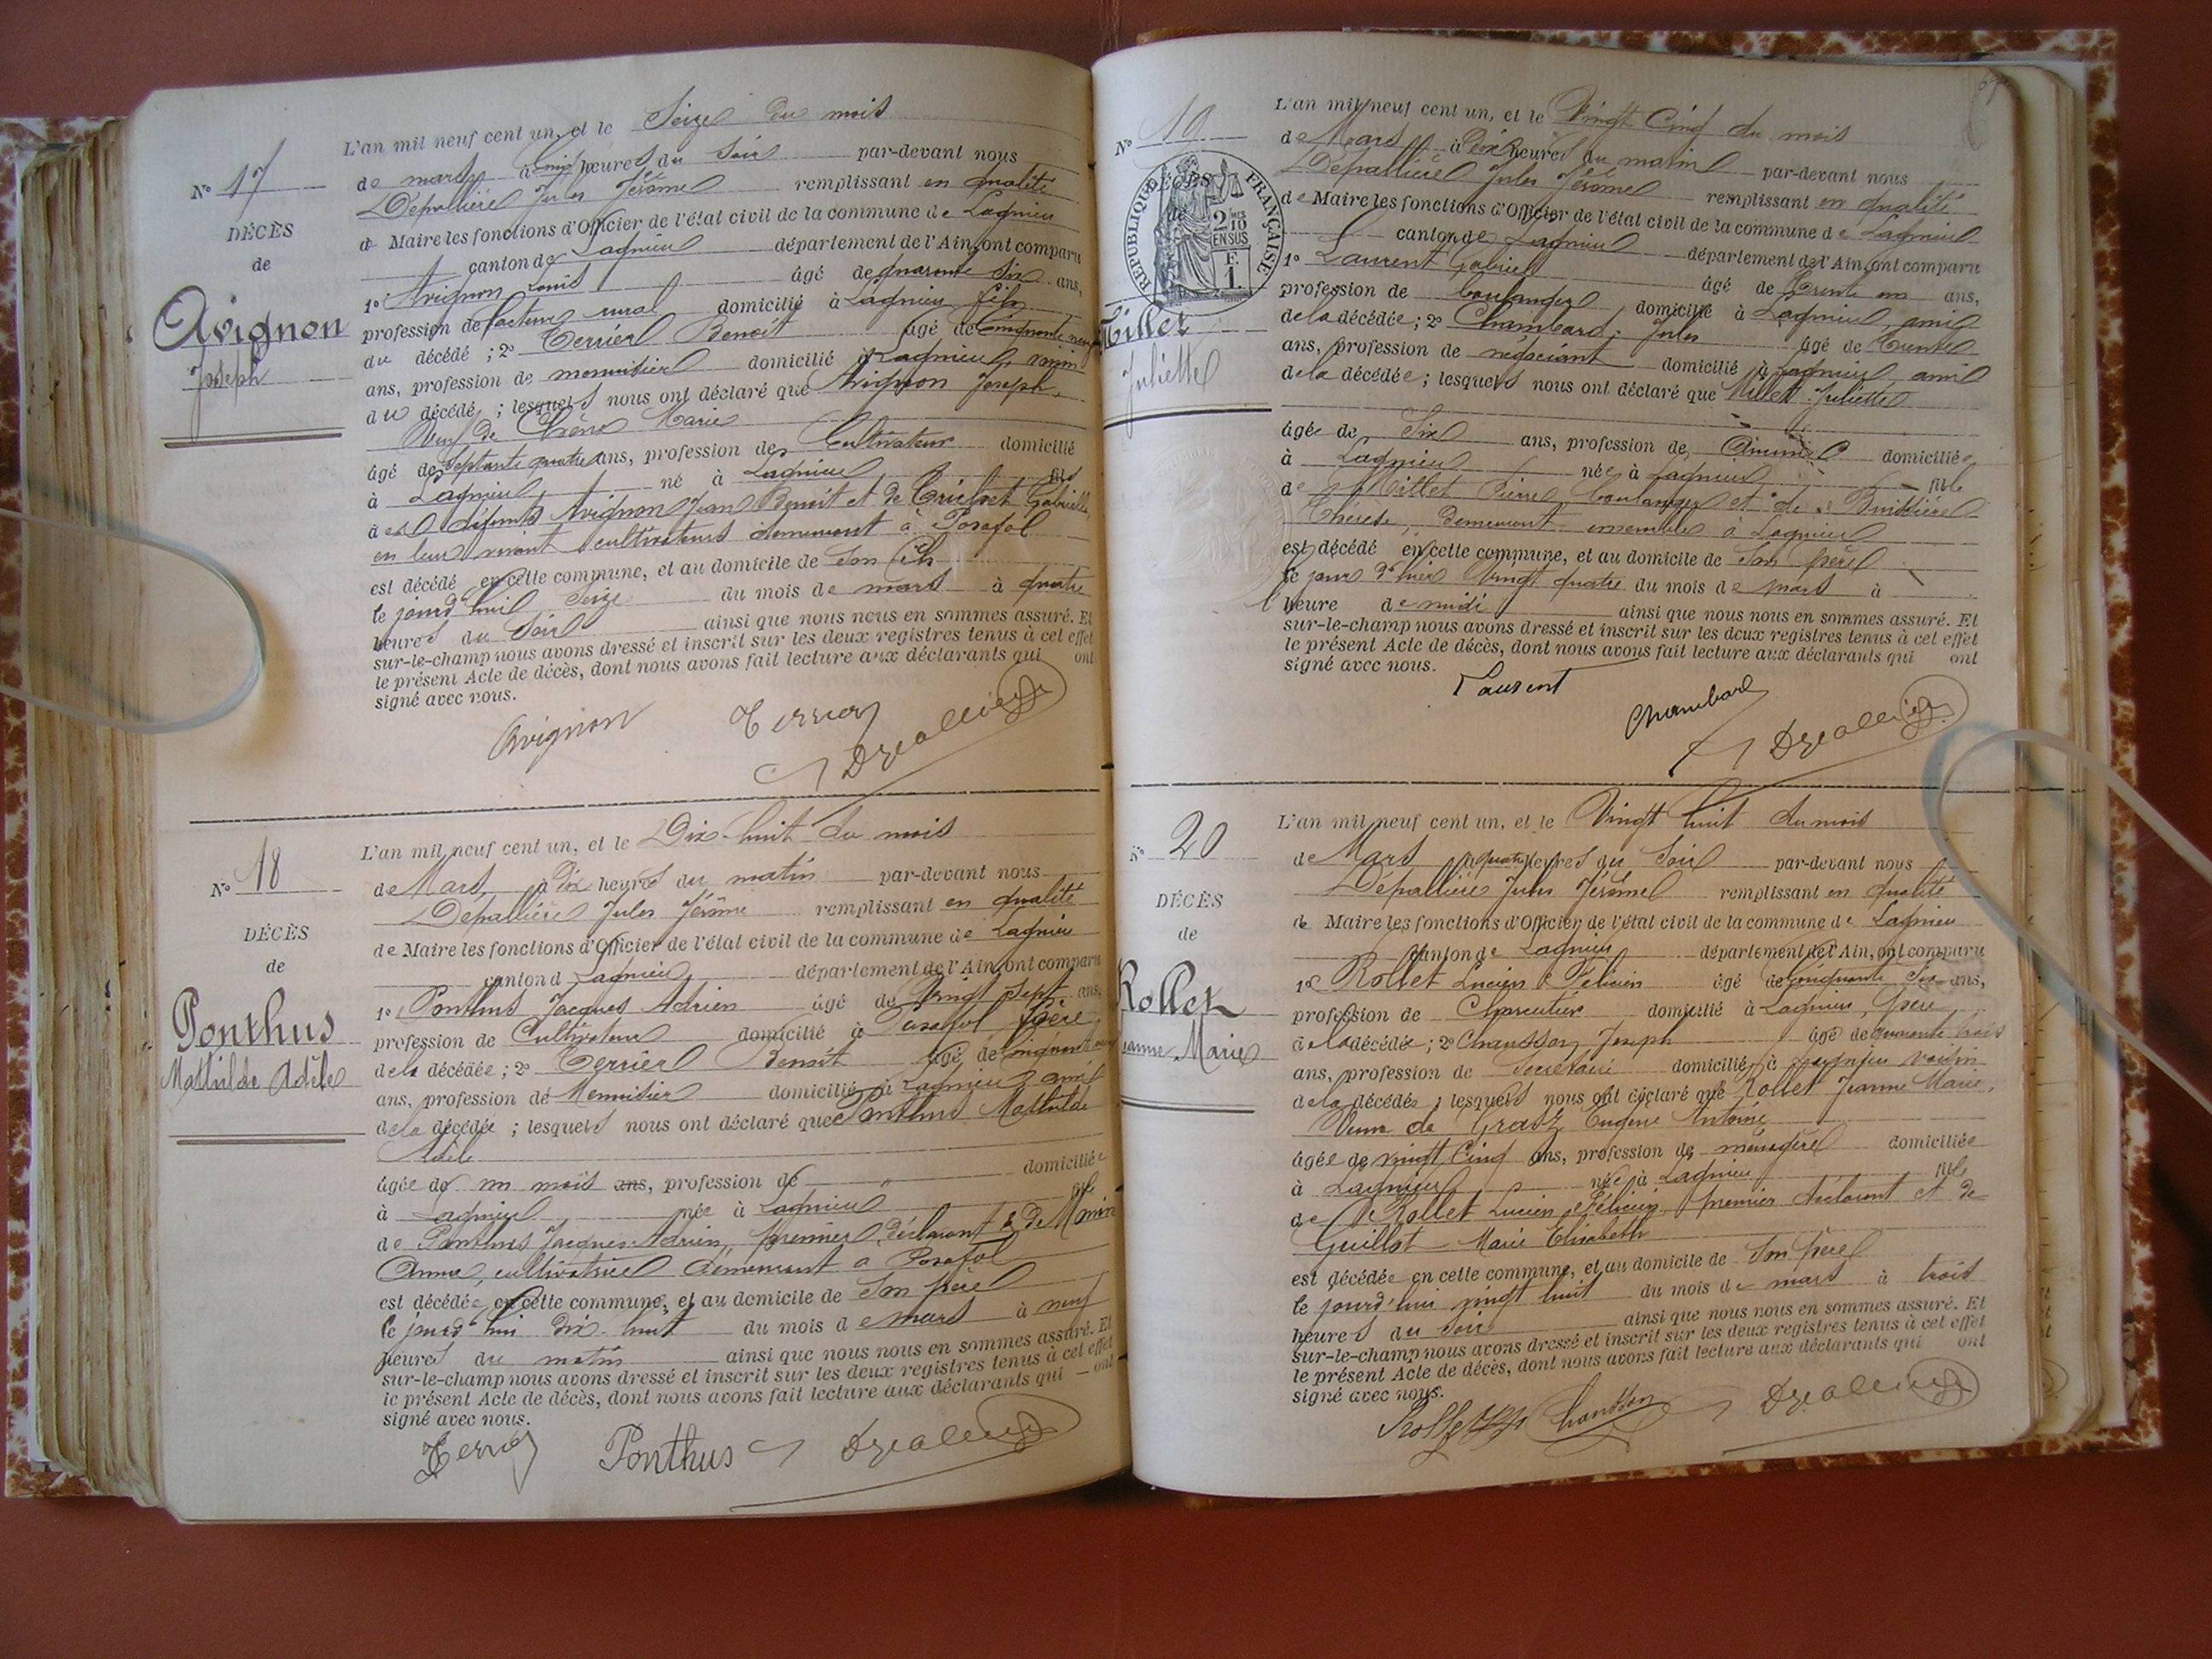 N° 17
DÉCÈS
de
Avignon
Joseph
L'an mil neuf cent un, et le Seize du mois
de mars à Cinq heures du Soir par-devant nous
Dépallière Jules Jérôme remplissant en qualité
de Maire les fonctions d'Officier de l'état civil de la commune de Lagnieu
canton de Lagnieu département de l'Ain, ont comparu
1° Avignon Louis âgé de quarante Six ans,
profession de facteur rural domicilié à Lagnieu fils
du décédé ; 2° Terrier Benoit âgé de Cinquante neuf
ans, profession de menuisier domicilié à Lagnieu, voisin
du décédé ; lesquels nous ont déclaré que Avignon Joseph,
Veuf de Marie
âgé de Septante quatre ans, profession de Cultivateur domicilié
à Lagnieu né à Lagnieu fils
des défunts Avignon Jean Benoit et de Gabrielle,
en leur vivant cultivateurs demeurant à Posafol
est décédé en cette commune, et au domicile de Son fils
le jourd'hui Seize du mois de mars à quatre
heures du Soir ainsi que nous nous en sommes assuré. Et
sur-le-champ nous avons dressé et inscrit sur les deux registres tenus à cet effet
le présent Acte de décès, dont nous avons fait lecture aux déclarants qui ont
signé avec nous.
Avignon Terrier Dépallière
N° 18
DÉCÈS
de
Ponthus
Mathilde Adèle
L'an mil neuf cent un, et le Dix-huit du mois
de Mars, à Dix heures du matin par-devant nous
Dépallière Jules Jérôme remplissant en qualité
de Maire les fonctions d'Officier de l'état civil de la commune de Lagnieu
canton d Lagnieu département de l'Ain, ont comparu
1° Ponthus Jacques Adrien âgé de Vingt Sept ans,
profession de Cultivateur domicilié à Posafol Père
de la décédée ; 2° Terrier Benoit âgé de cinquante neuf
ans, profession de Menuisier domicilié à Lagnieu ami
de la décédée ; lesquels nous ont déclaré que Ponthus Mathilde
Adèle
âgée de un mois ans, profession de domiciliée
à Lagnieu née à Lagnieu fille
de Ponthus Jacques Adrien, premier déclarant & de Monin
Anne, cultivatrice demeurant a Posafol
est décédée en cette commune, et au domicile de Son père
le jourd'hui dix-huit du mois de mars à neuf
heures du matin ainsi que nous nous en sommes assuré. Et
sur-le-champ nous avons dressé et inscrit sur les deux registres tenus à cet effet
le présent Acte de décès, dont nous avons fait lecture aux déclarants qui ont
signé avec nous.
Terrier Ponthus Dépallière
N° 19
DÉCÈS
de
RÉPUBLIQUE FRANÇAISE
2 10 EN SUS
F. 1
Millet
Juliette
L'an mil neuf cent un, et le Vingt Cinq du mois
de Mars à Dix heures du matin par-devant nous
Dépallière Jules Jérôme remplissant en qualité
de Maire les fonctions d'Officier de l'état civil de la commune de Lagnieu
canton de Lagnieu département de l'Ain, ont comparu
1° Laurent Gabriel âgé de Trente un ans,
profession de boulanger domicilié à Lagnieu, ami
de la décédée ; 2° Chambard Jules âgé de Trente
ans, profession de négociant domicilié à Lagnieu, ami
de la décédée ; lesquels nous ont déclaré que Millet Juliette
âgée de Six ans, profession de domiciliée
à Lagnieu née à Lagnieu fille
de Millet Pierre boulanger et de Buissière
Thérèse, demeurant ensemble à Lagnieu
est décédé en cette commune, et au domicile de Son père
le jour d'hier Vingt quatre du mois de mars à
heure de midi ainsi que nous nous en sommes assuré. Et
sur-le-champ nous avons dressé et inscrit sur les deux registres tenus à cet effet
le présent Acte de décès, dont nous avons fait lecture aux déclarants qui ont
signé avec nous.
Laurent Chambard Dépallière
N° 20
DÉCÈS
de
Rollet
Jeanne Marie
L'an mil neuf cent un, et le Vingt huit du mois
de Mars à quatre heures du Soir par-devant nous
Dépallière Jules Jérôme remplissant en qualité
de Maire les fonctions d'Officier de l'état civil de la commune de Lagnieu
canton de Lagnieu département de l'Ain, ont comparu
1° Rollet Lucien Félicien âgé de Cinquante Six ans,
profession de Charcutier domicilié à Lagnieu, père
de la décédée ; 2° Chausson Joseph âgé de quarante trois
ans, profession de Secrétaire domicilié à Lagnieu voisin
de la décédée ; lesquels nous ont déclaré que Rollet Jeanne Marie,
Veuve de Eugène Antoine
âgée de vingt Cinq ans, profession de ménagère domiciliée
à Lagnieu née à Lagnieu fille
de Rollet Lucien Félicien, premier déclarant et de
Guillot Marie Elisabeth
est décédée en cette commune, et au domicile de Son père
le jourd'hui vingt huit du mois de mars à trois
heures du soir ainsi que nous nous en sommes assuré. Et
sur-le-champ nous avons dressé et inscrit sur les deux registres tenus à cet effet
le présent Acte de décès, dont nous avons fait lecture aux déclarants qui ont
signé avec nous.
Rollet Chausson Dépallière